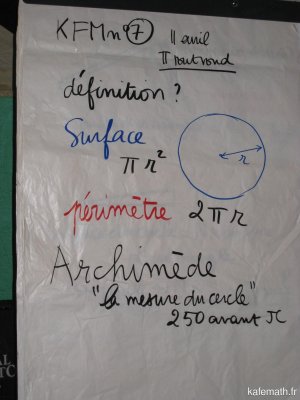 KFM n° 7 11 avril
π tout rond
définition ?
Surface
π r²
r
périmètre 2 π r
Archimède
"la mesure du cercle"
250 avant JC
kafemath.fr